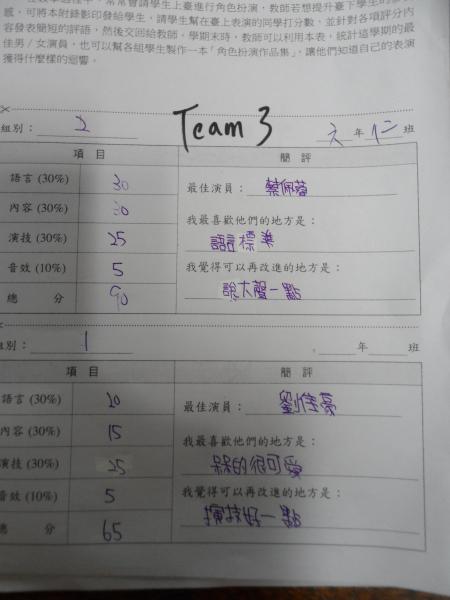 感,可將本附錄影印發給學生,請學生幫在臺上表演的同學打分數,並針對各項評分內
容發表簡短的評語,然後交回給教師。學期末時,教師可以利用本表,統計這學期的最
佳男/女演員,也可以幫各組學生製作一本「角色扮演作品集」,讓他們知道自己的表演
獲得什麼樣的迴響。
Team 3
組別: 2 六 年 仁 班
項目 簡評
語言 (30%) 30 最佳演員: 蔡佩蓉
內容 (30%) 30 我最喜歡他們的地方是:
演技 (30%) 25 語言標準
音效 (10%) 5 我覺得可以再改進的地方是:
總分 90 說大聲一點
組別: 1 年 班
項目 簡評
語言 (30%) 20 最佳演員: 劉
內容 (30%) 15 我最喜歡他們的地方是:
演技 (30%) 25 呆呆的很可愛
音效 (10%) 5 我覺得可以再改進的地方是:
總分 65 演技好一點